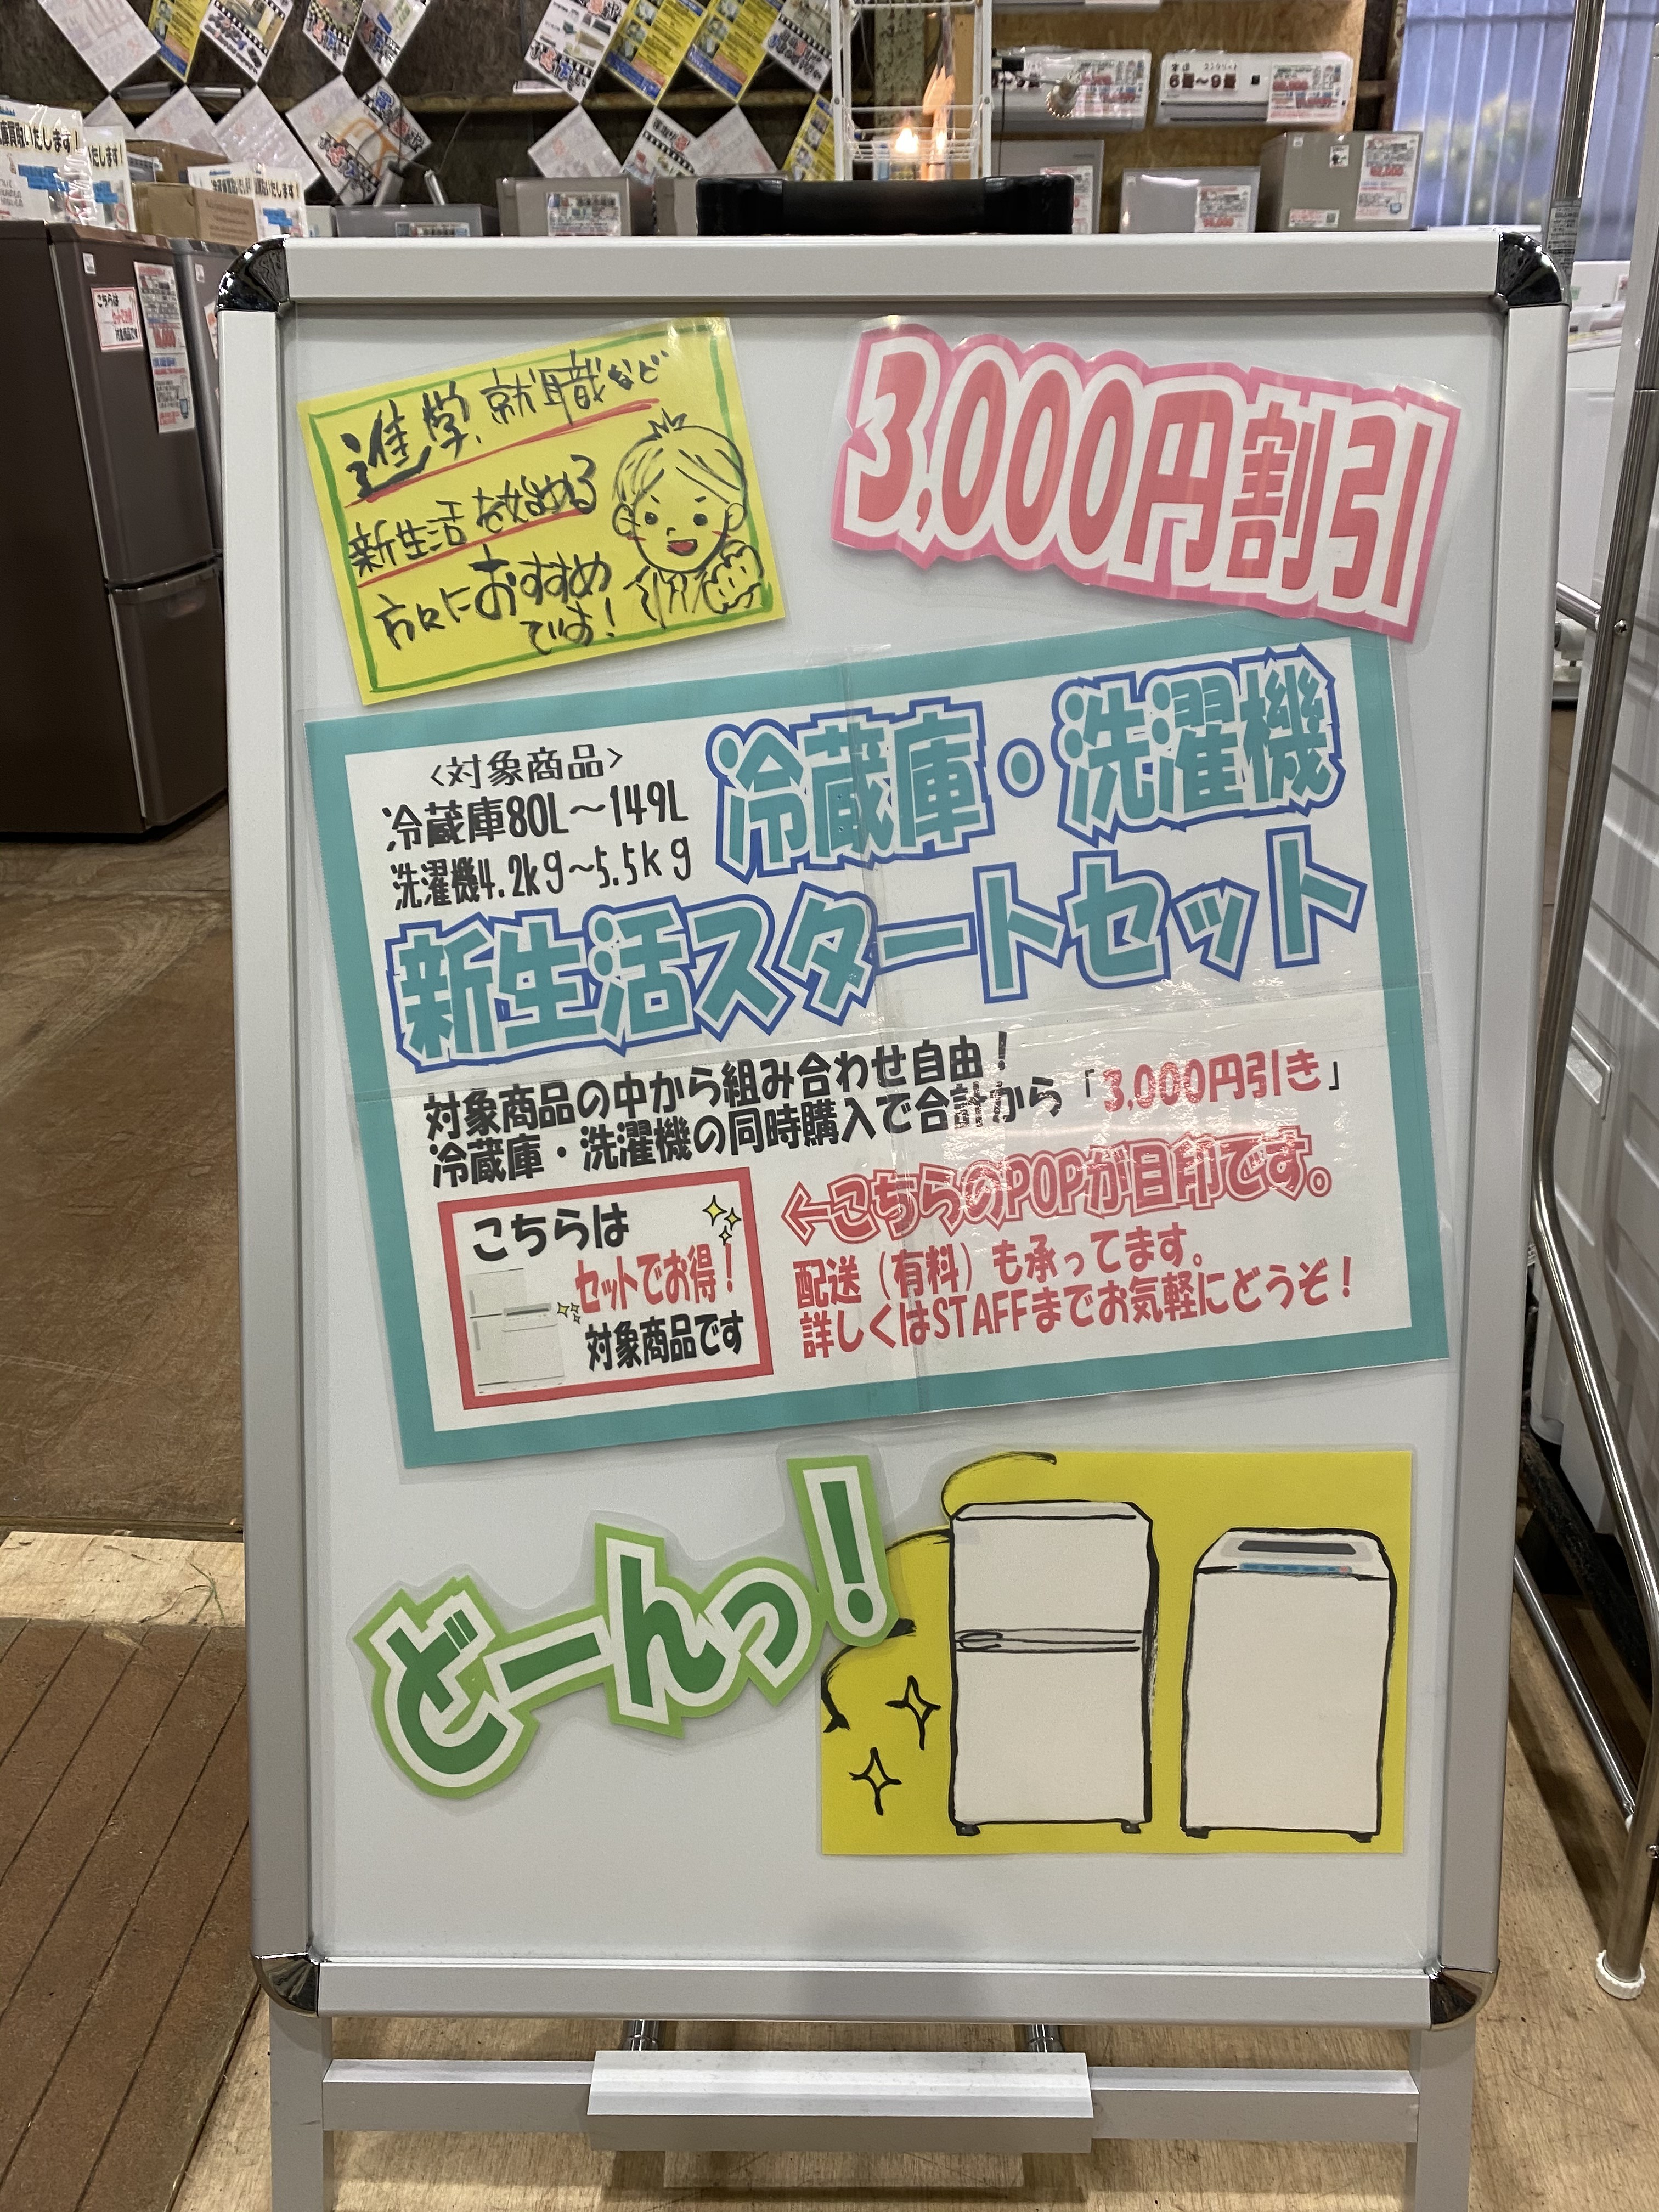 進学、就職など
新生活を始める
方々におすすめ
です！
3,000円割引
<対象商品>
冷蔵庫80L～149L
洗濯機4.2kg～5.5kg
冷蔵庫・洗濯機
新生活スタートセット
対象商品の中から組み合わせ自由！
冷蔵庫・洗濯機の同時購入で合計から「3,000円引き」
こちらは
セットでお得！
対象商品です
←こちらのPOPが目印です。
配送（有料）も承ってます。
詳しくはSTAFFまでお気軽にどうぞ！
どーんっ！
こちらは
対象商品です
6畳～9畳